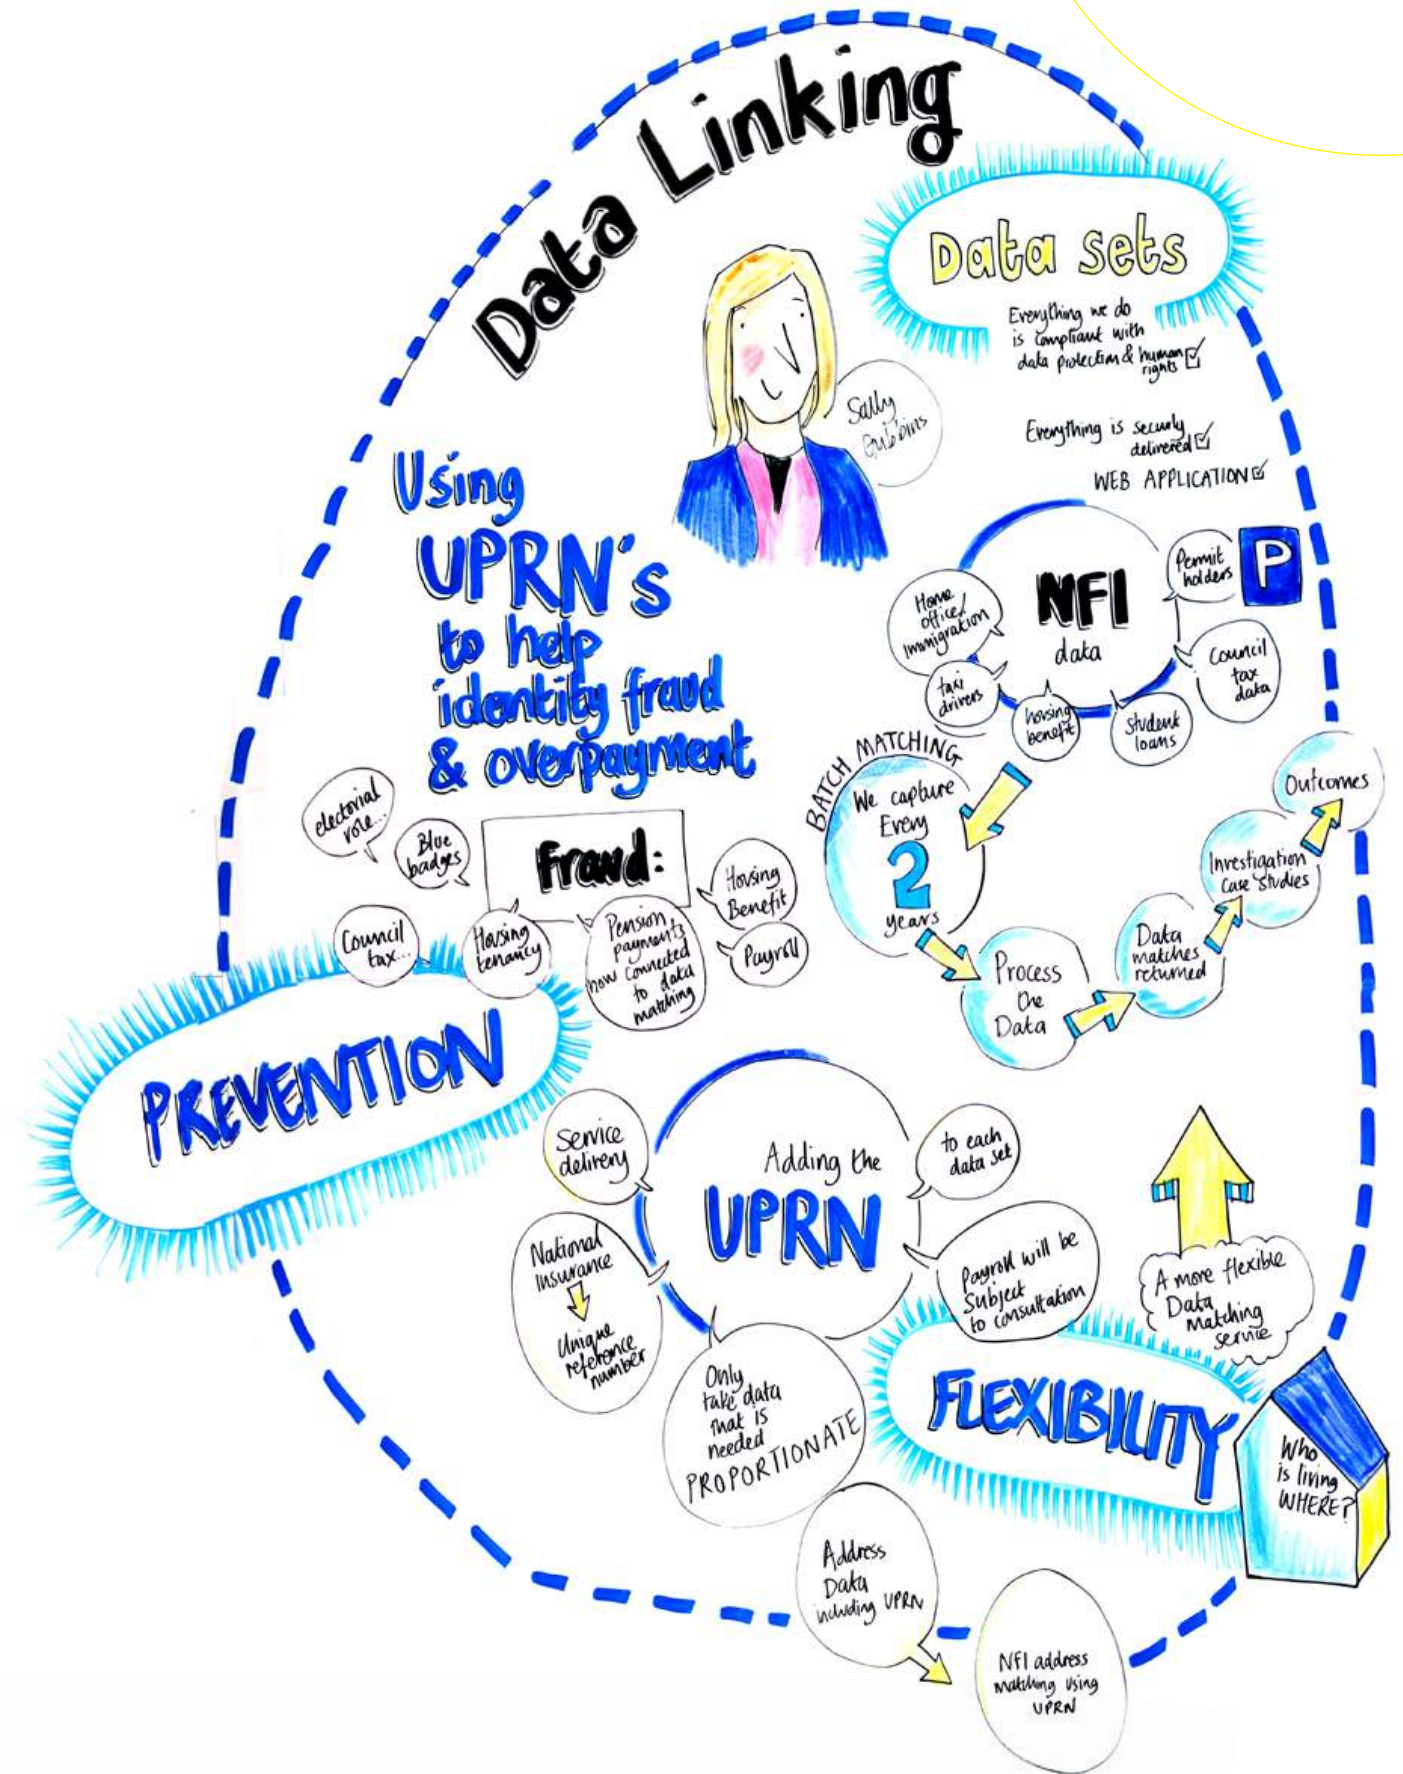 Data Linking
Data sets
Everything we do
is compliant with
data protection & human
rights
Everything is securly
delivered
WEB APPLICATION
Sally
Gubbins
Using
UPRN's
to help
identity fraud
& overpayment
NFI
data
Permit
holders
P
Home
office/
immigration
taxi
drivers
housing
benefit
Student
loans
Council
tax
data
BATCH MATCHING
We capture
Every
2
years
Process
the
Data
Data
matches
returned
Investigation
Case studies
Outcomes
electorial
role...
Blue
badges
Fraud:
Council
tax...
Housing
tenancy
Pension
payments
now connected
to data
matching
Housing
Benefit
Payroll
PREVENTION
Service
delivery
Adding the
UPRN
to each
data set
National
Insurance
Unique
reference
number
Payroll will be
Subject
to consultation
Only
take data
that is
needed
PROPORTIONATE
A more flexible
Data
Matching
service
FLEXIBILITY
Who
is living
WHERE?
Address
Data
including UPRN
NFI address
matching using
UPRN